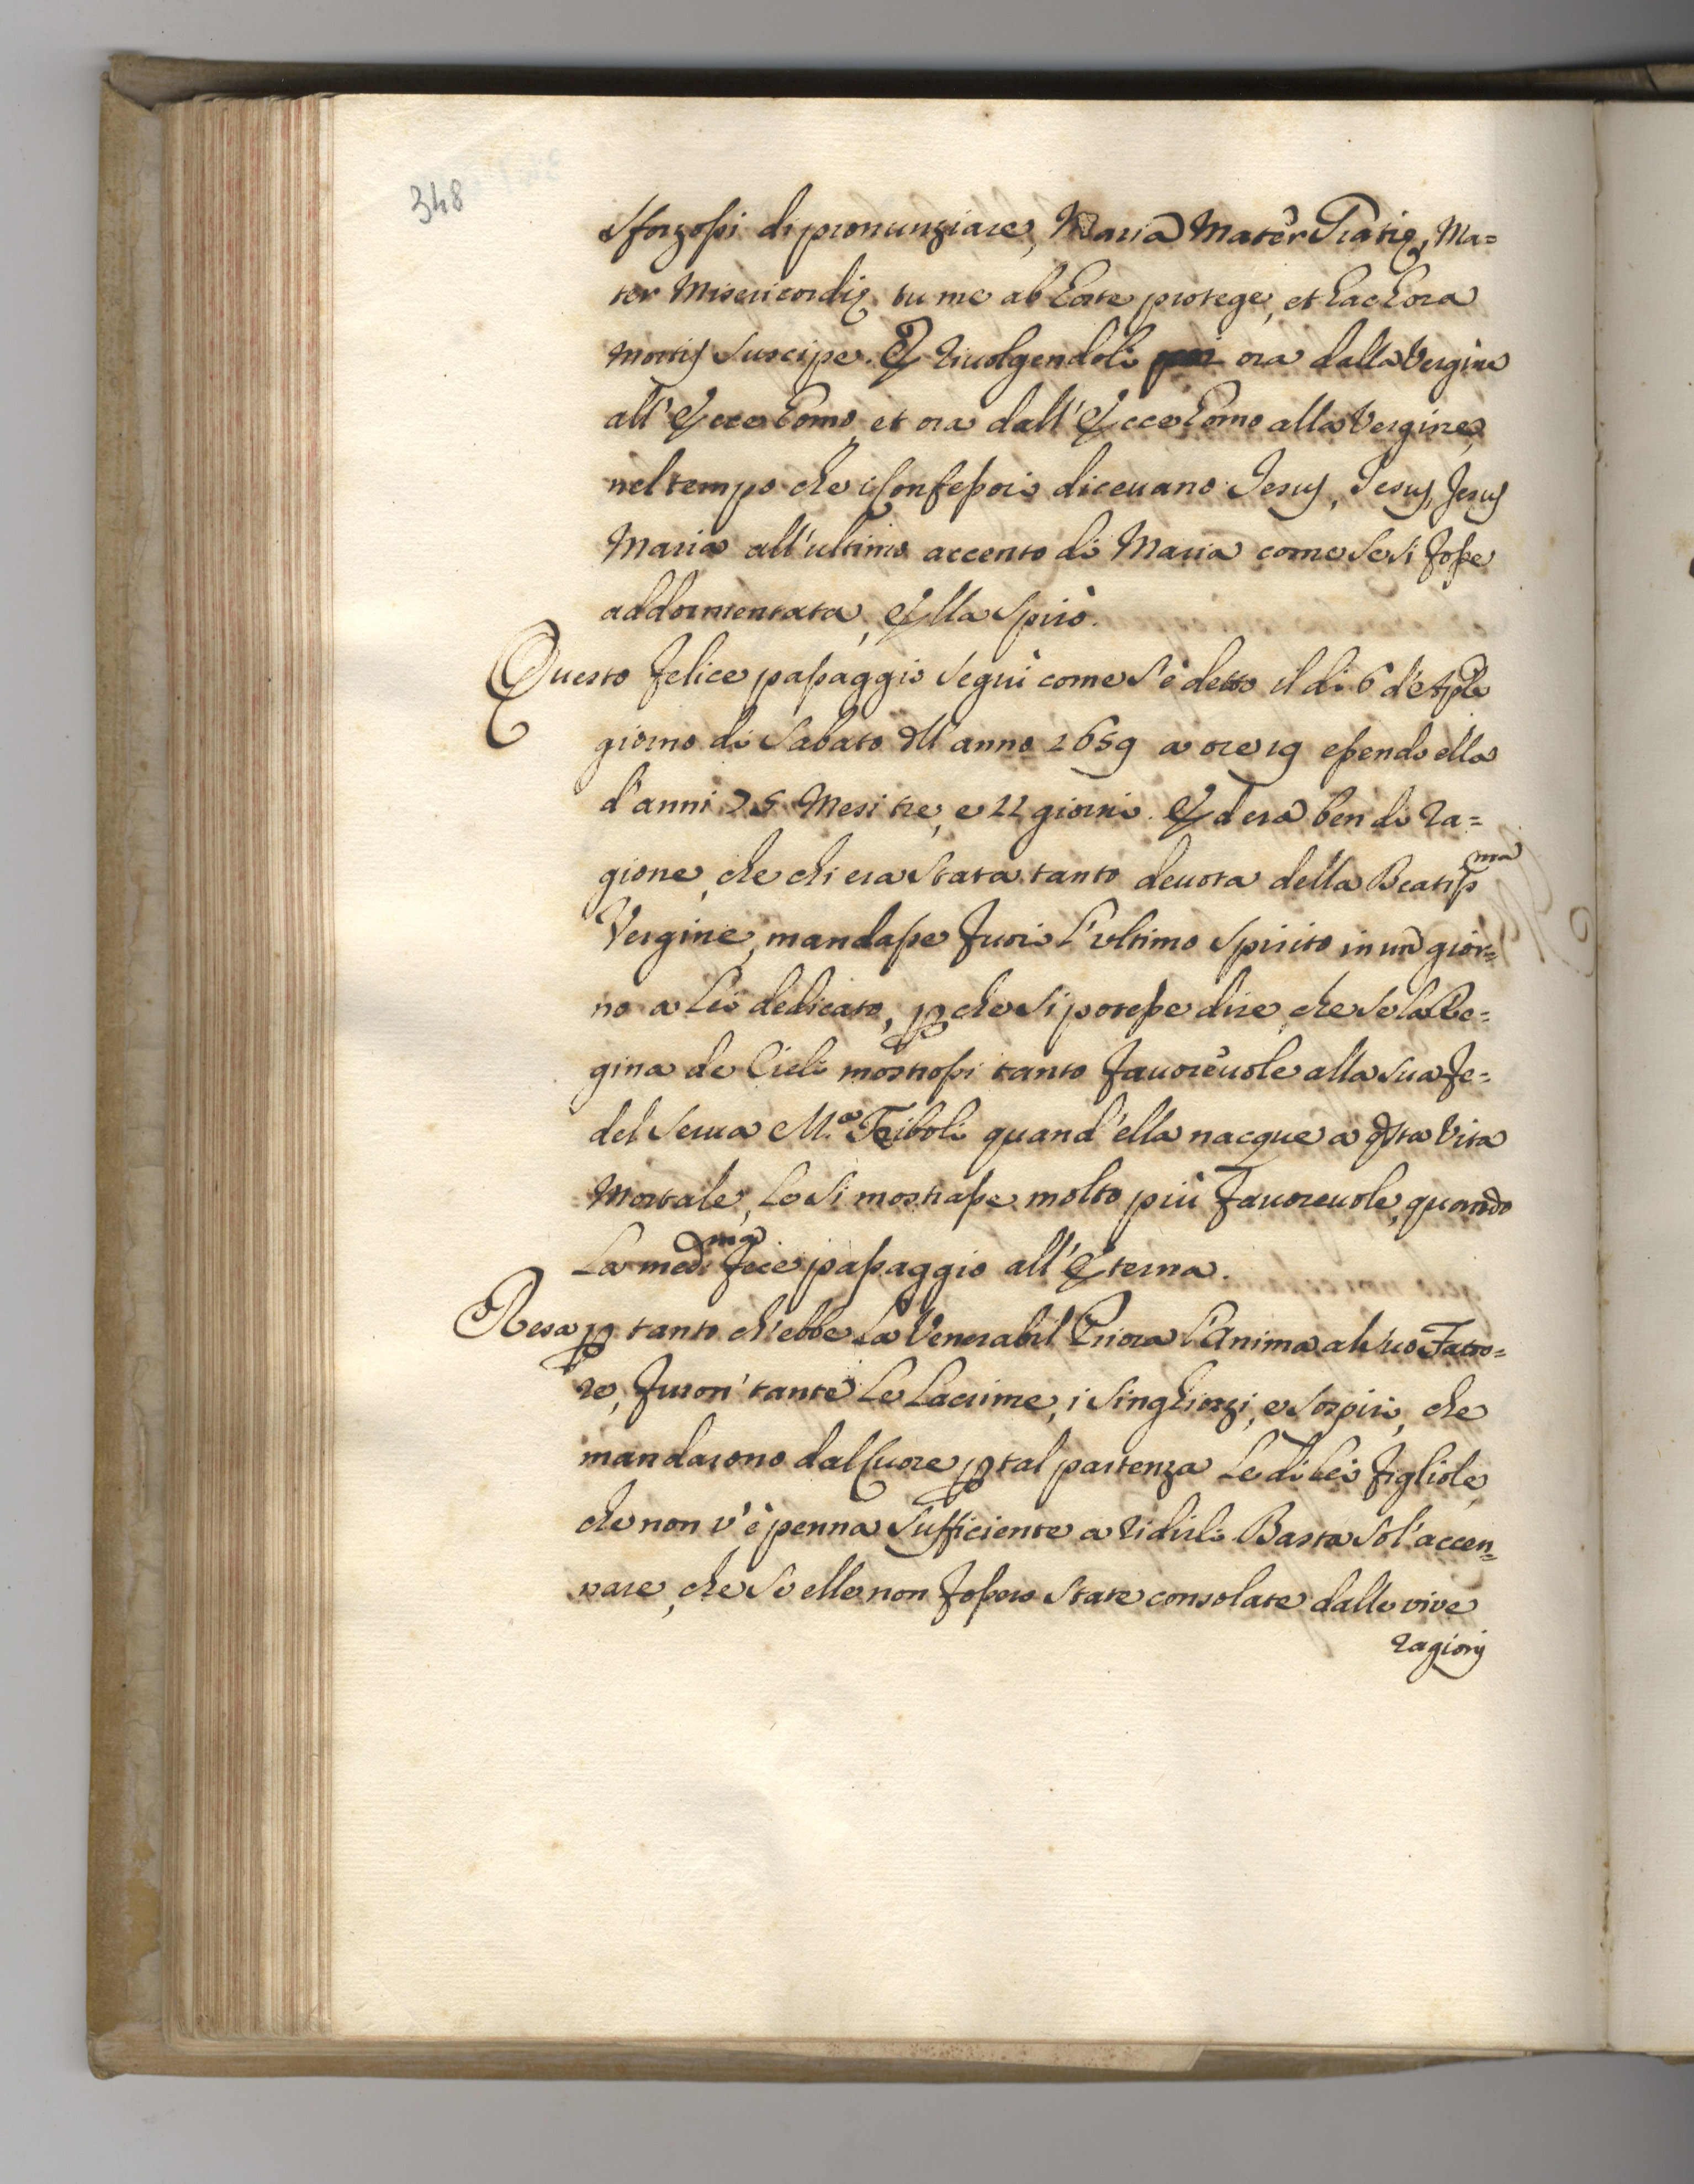 348
sforzossi di pronunziare, Maria Mater Gratię, Ma=
ter Misericordię tu me ab hoste protege, et hac hora
mortis suscipe. E rivolgendosi ora dalla Vergine
all'Ecce homo, et ora dall'Ecce homo alla Vergine,
nel tempo che i Confessori diceuano Jesus, Jesus, Jesus
Maria all'ultimo accento di Maria come se si fosse
addormentata, Ella spirò.
Questo felice passaggio seguì come s'è detto il di 6 d'Aple
giorno di Sabato dll'anno 1659 a ore 19 essendo ella
d'anni 75 Mesi tre, e 22 giorni. Ed era ben di ra=
gione, che chi era stata tanto deuota della Beatissma
Vergine, mandasse fuori l'ultimo spirito in un gior=
no a Lei dedicato, pche si potesse dire, che se la Re=
gina de Cieli mostrossi tanto fauoreuole alla sua fe=
del serua M.a Feiboli quand'ella nacque a qsta vita
Mortale, Le si mostrasse molto più fauoreuole, quando
La med.ma fece passaggio all'Eterna.
Resa p tanto ch'ebbe La Venerabil Priora l'Anima al suo Fatto=
re, furon' tante Le Lacrime, i singhiozzi, e sospiri, che
mandarono dal Cuore p tal partenza Le di Lei figliole,
che non v'è penna sufficiente a ridirli. Basta sol'accen=
nare, che se elle non fossero state consolate dalle vive
ragioni